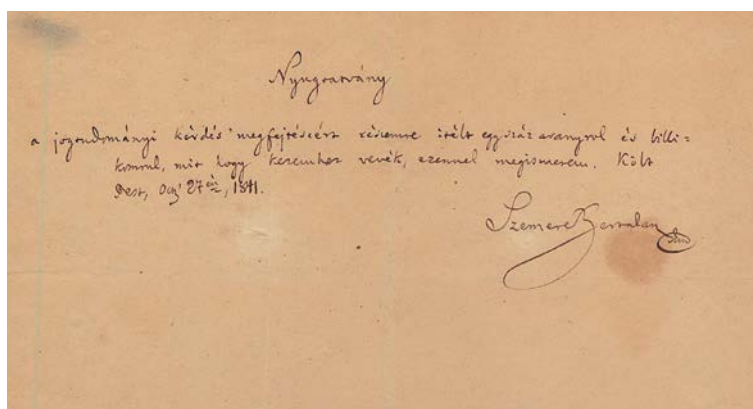 Nyugtatvány
a jogtudományi kérdés' megfejtéseért részemre itélt egyszáz aranyrol és billi=
komrul, mit hogy kezemhez vevék, ezennel megismerem. Költ
Pest, 27én, 1841.
Szemere Bertalan